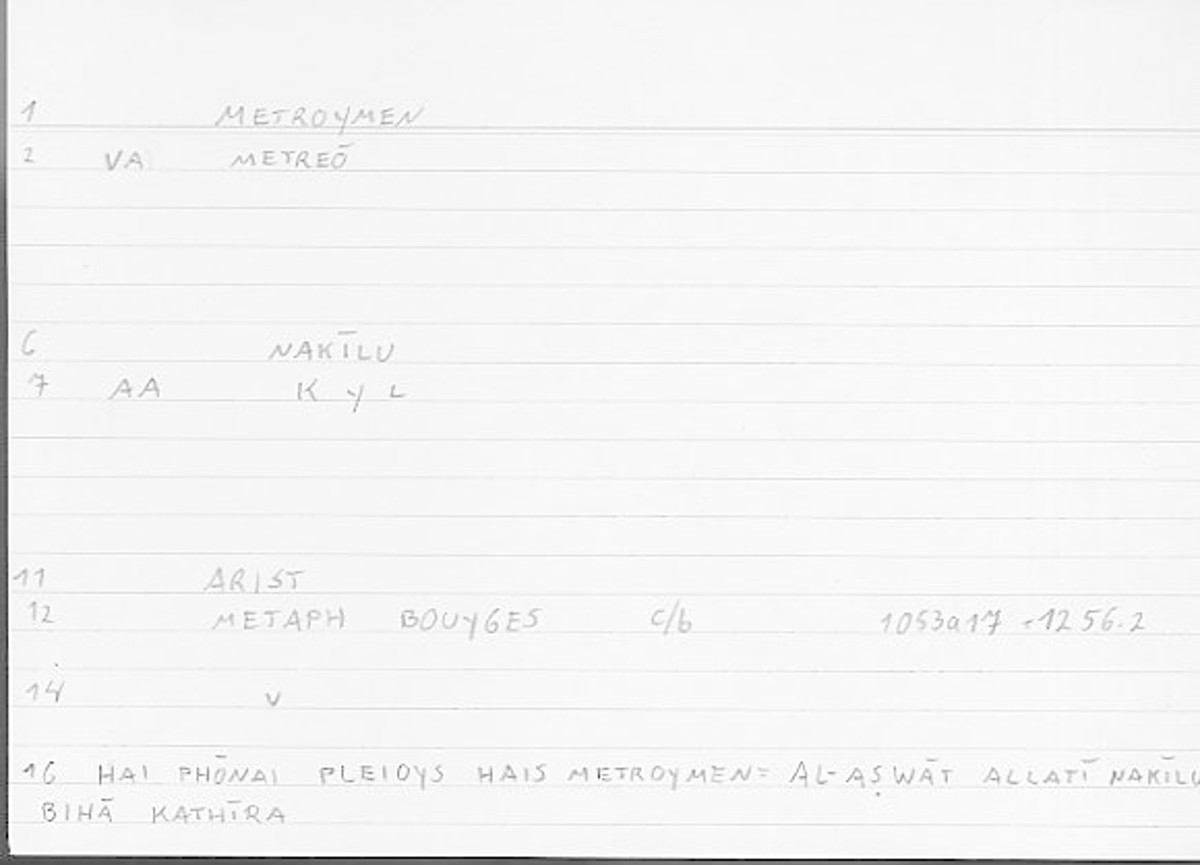 1 METROYMEN
2 VA METREŌ
6 NAKĪLU
7 AA K Y L
11 ARIST
12 METAPH BOUYGES c/b 1053a17 -1256.2
14 v
16 HAI PHŌNAI PLEIOYS HAIS METROYMEN= AL-AṢWĀT ALLATĪ NAKĪLU
BIHĀ KATHĪRA